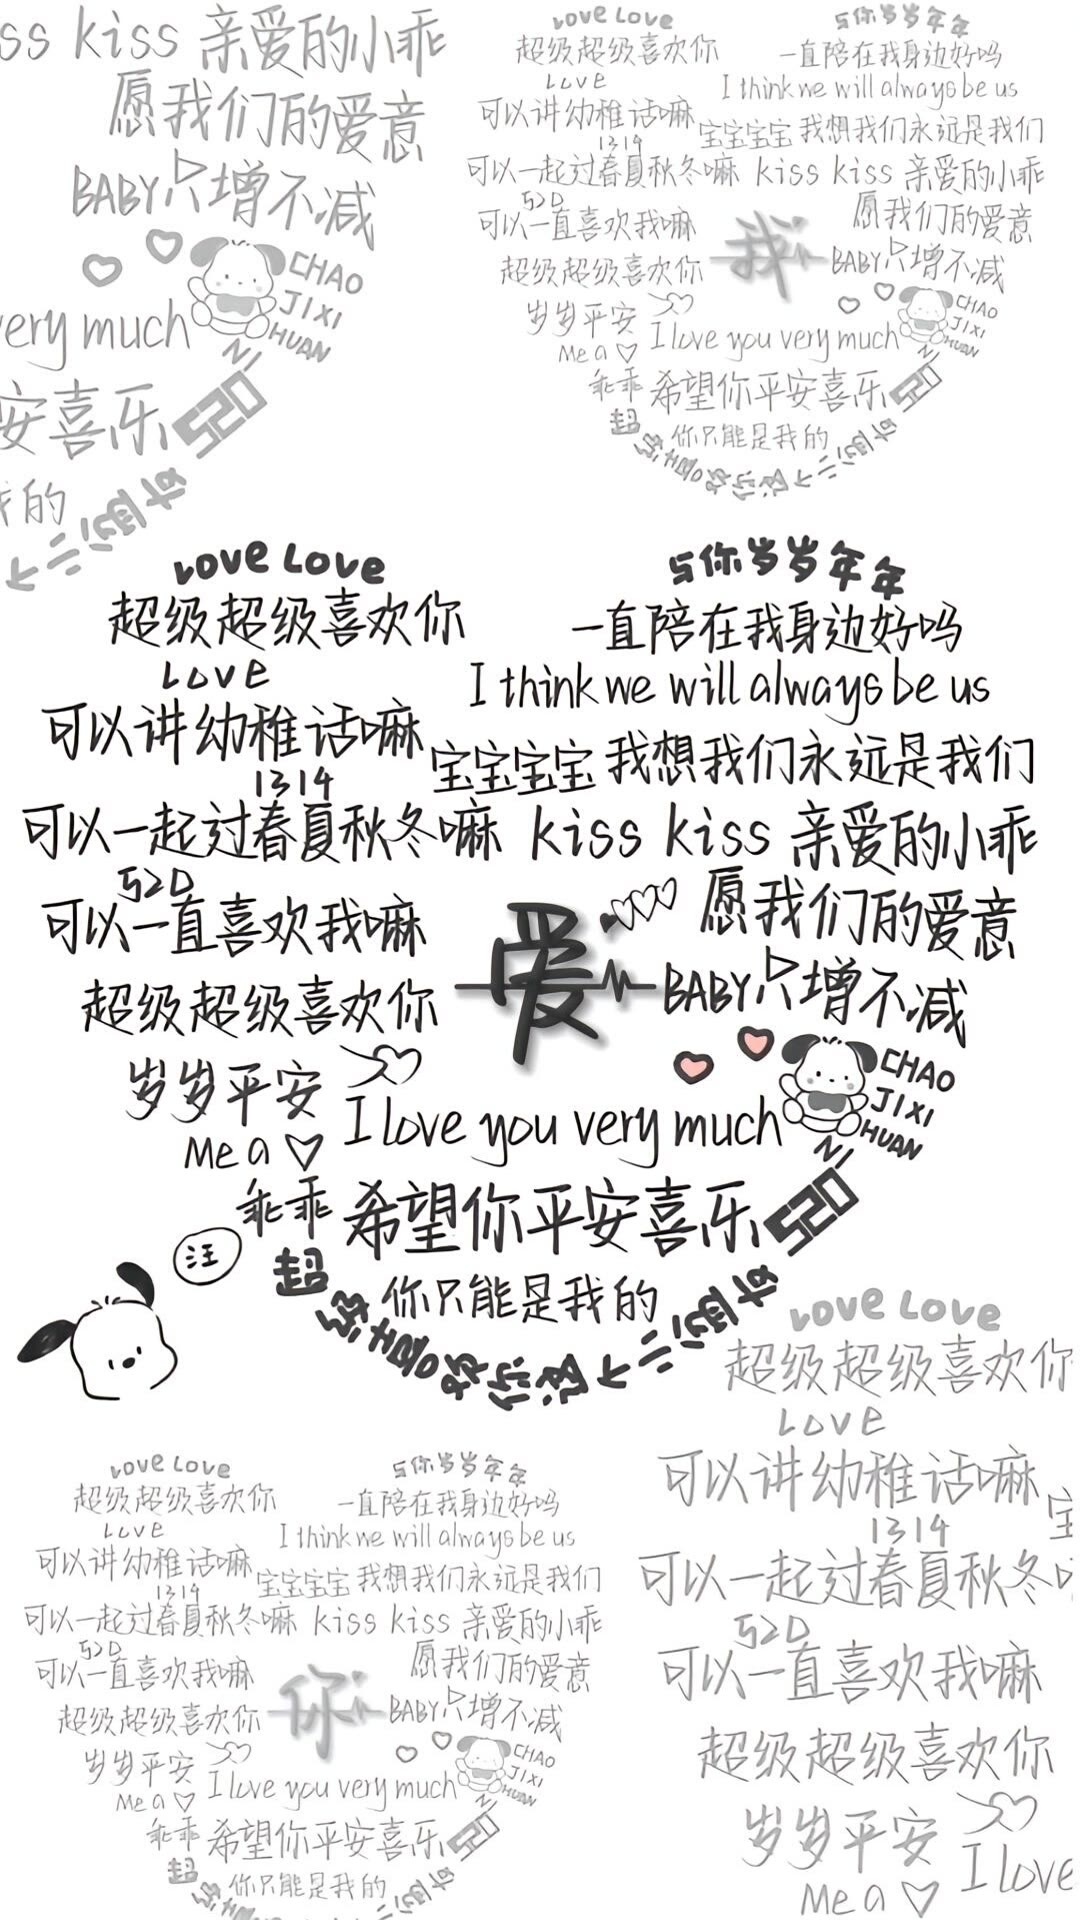 ss kiss 亲爱的小乖
愿我们的爱意
BABY只增不减
CHAO
JIXI
HUAN
NI
very much
安喜乐 520
我的
Love Love
与你岁岁年年
超级超级喜欢你
一直陪在我身边好吗
Love
I think we will always be us
可以讲幼稚话嘛
宝宝宝宝 我想我们永远是我们
1314
可以一起过春夏秋冬嘛 kiss kiss 亲爱的小乖
520
愿我们的爱意
可以一直喜欢我嘛
我
BABY只增不减
超级超级喜欢你
CHAO
JIXI
HUAN
NI
岁岁平安
I love you very much
Me a
乖乖 希望你平安喜乐 520
你只能是我的
Love Love
与你岁岁年年
超级超级喜欢你
一直陪在我身边好吗
Love
I think we will always be us
可以讲幼稚话嘛
宝宝宝宝 我想我们永远是我们
1314
可以一起过春夏秋冬嘛 kiss kiss 亲爱的小乖
520
愿我们的爱意
可以一直喜欢我嘛
爱
BABY只增不减
超级超级喜欢你
CHAO
JIXI
HUAN
NI
岁岁平安
I love you very much
Me a
乖乖 希望你平安喜乐 520
汪
你只能是我的
超级喜欢你这个
Love Love
超级超级喜欢你
Love
可以讲幼稚话嘛
宝
1314
可以一起过春夏秋冬嘛
520
可以一直喜欢我嘛
超级超级喜欢你
岁岁平安
I love
Me a
Love Love
与你岁岁年年
超级超级喜欢你
一直陪在我身边好吗
Love
I think we will always be us
可以讲幼稚话嘛
宝宝宝宝 我想我们永远是我们
1314
可以一起过春夏秋冬嘛 kiss kiss 亲爱的小乖
520
愿我们的爱意
可以一直喜欢我嘛
你
BABY只增不减
超级超级喜欢你
CHAO
JIXI
HUAN
NI
岁岁平安
I love you very much
Me a
乖乖 希望你平安喜乐 520
你只能是我的